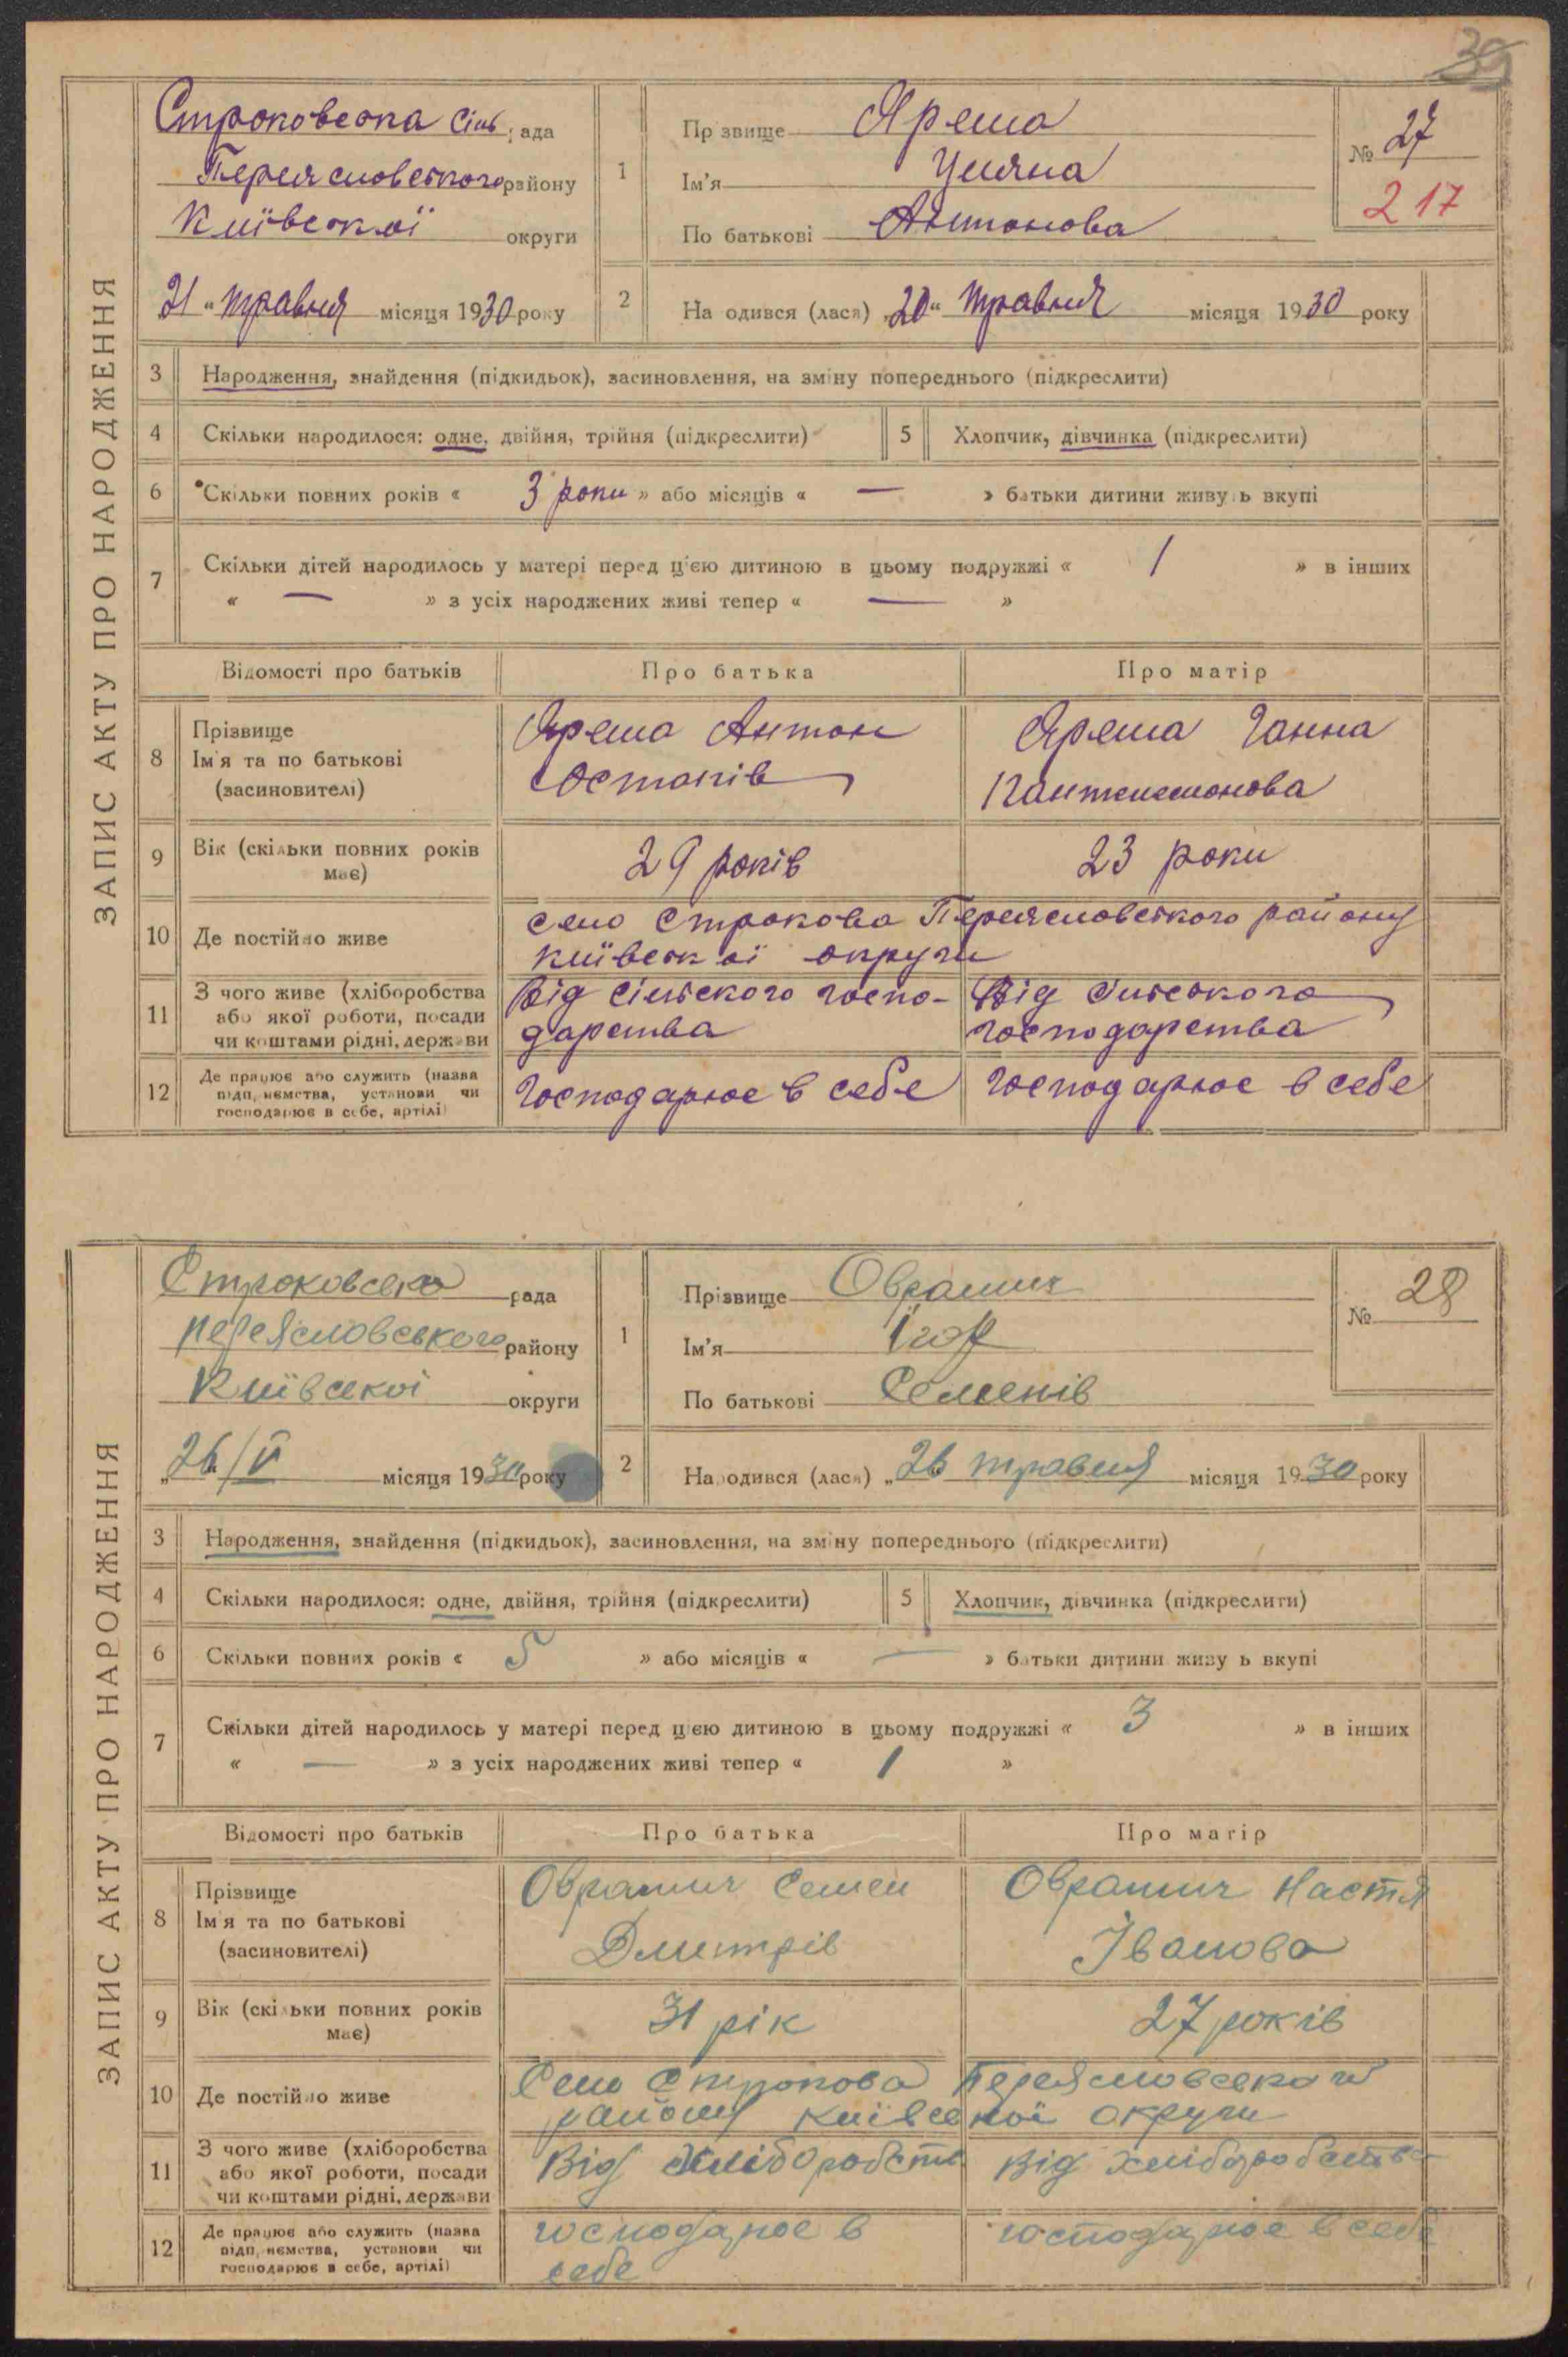 39
ЗАПИС АКТУ ПРО НАРОДЖЕННЯ
Строковська сіль рада
Переяславського району
Київської округи
21 " травня місяця 1930 року
1 Прізвище Ярема
Ім'я Уляна
По батькові Антонова
№ 27
217
2 Народився (лася) „20" травня місяця 1930 року
3 Народження, знайдення (підкидьок), засиновлення, на зміну попереднього (підкреслити)
4 Скільки народилося: одне, двійня, трійня (підкреслити)
5 Хлопчик, дівчинка (підкреслити)
6 Скільки повних років « 3 роки » або місяців « — » батьки дитини живуть вкупі
7 Скільки дітей народилось у матері перед ц'єю дитиною в цьому подружжі « 1 » в інших
« — » з усіх народжених живі тепер « — »
Відомості про батьків Про батька Про матір
8 Прізвище
Ім'я та по батькові
(засиновителі)
Ярема Антон
Остапів
Ярема Ганна
Пантелемонова
9 Вік (скільки повних років
має)
29 років
23 роки
10 Де постійно живе
село Строкова Переяславського району
Київської округи
11 З чого живе (хліборобства
або якої роботи, посади
чи коштами рідні, держави
Від сільського госпо-
дарства
Від сільського
господарства
12 Де працює або служить (назва
підприємства, установи чи
господарює в себе, артілі)
Господарює в себе
Господарює в себе
ЗАПИС АКТУ ПРО НАРОДЖЕННЯ
Строковська рада
Переяславського району
Київської округи
„26/V місяця 1930 року
1 Прізвище
Ім'я Ігор
По батькові Семенів
№ 28
2 Народився (лася) „26 травня місяця 1930 року
3 Народження, знайдення (підкидьок), засиновлення, на зміну попереднього (підкреслити)
4 Скільки народилося: одне, двійня, трійня (підкреслити)
5 Хлопчик, дівчинка (підкреслити)
6 Скільки повних років « 5 » або місяців « — » батьки дитини живуть вкупі
7 Скільки дітей народилось у матері перед цією дитиною в цьому подружжі « 3 » в інших
« — » з усіх народжених живі тепер « 1 »
Відомості про батьків Про батька Про матір
8 Прізвище
Ім'я та по батькові
(засиновителі)
Семен
Дмитрів
Настя
Іванова
9 Вік (скільки повних років
має)
31 рік
27 років
10 Де постійно живе
Село Строкова Переяславського
району Київської округи
11 З чого живе (хліборобства
або якої роботи, посади
чи коштами рідні, держави
Від хліборобств
Від хліборобства
12 Де працює або служить (назва
підприємства, установи чи
господарює в себе, артілі)
господарює в
себе
господарює в себе